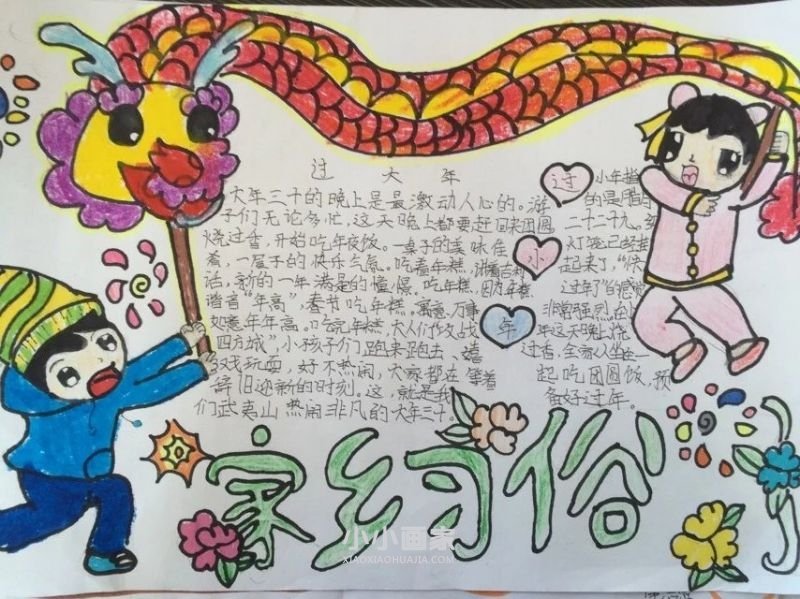 过大年
大年三十的晚上是最激动人心的。游
子们无论多忙，这天晚上都要赶回来团圆
烧过香，开始吃年夜饭。一桌子的美味佳
着，一屋子的快乐气氛。吃着年糕，讲着吉利
话，新的一年满是的憧憬。吃年糕，因为年糕
谐音“年高”，春节吃年糕。寓意，万事
如意年年高。吃完年糕，大人们作友战
四方城”，小孩子们跑来跑去、嬉
戏玩耍，好不热闹，大家都在等着
辞旧迎新的时刻。这，就是我
们武夷山热闹非凡的大年三十。
过小年
小年指
的是腊月
二十二十九。
灯笼已经挂
起来了，“快
过年了”的感觉
非常强烈。在
年这天晚上，烧
过香，全家人坐在一
起吃团圆饭，预
备好过年。
家乡习俗
小小画家
XIAOXIAOHUAJIA.COM